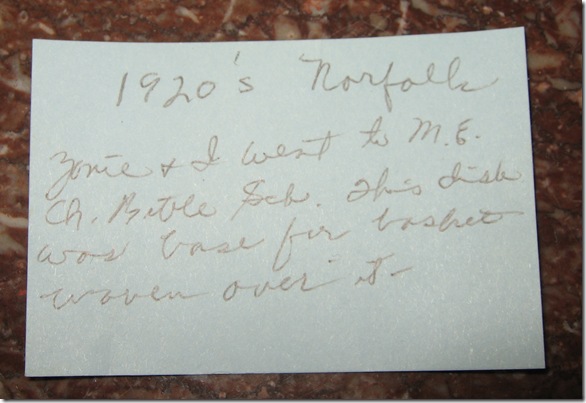 1920's Norfolk
Zonie & I went to M.E.
Ch. Bible Sch. This dish
was base for basket
woven over it-